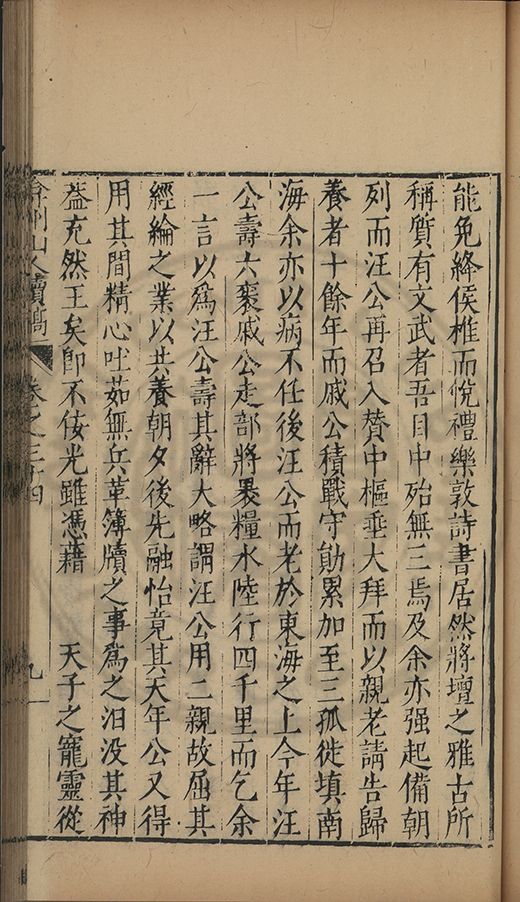 能免絳侯椎而恱禮樂敦詩書居然將壇之雅古所
稱質有文武者吾目中殆無三焉及余亦强起備朝
列而汪公再召入賛中樞垂大拜而以親老請告歸
養者十餘年而戚公積戰守勛累加至三孤徙填南
海余亦以病不任後汪公而老於東海之上今年汪
公壽六袠戚公走部將褁糧水陸行四千里而乞余
一言以爲汪公壽其辭大略謂汪公用二親故屈其
經綸之業以共養朝夕後先融怡竟其天年公又得
用其間精心吐茹無兵革簿牘之事爲之汩没其神
益充然王矣卽不佞光雖憑藉　　天子之寵靈從
弇州山人續稿　卷之三十四　九